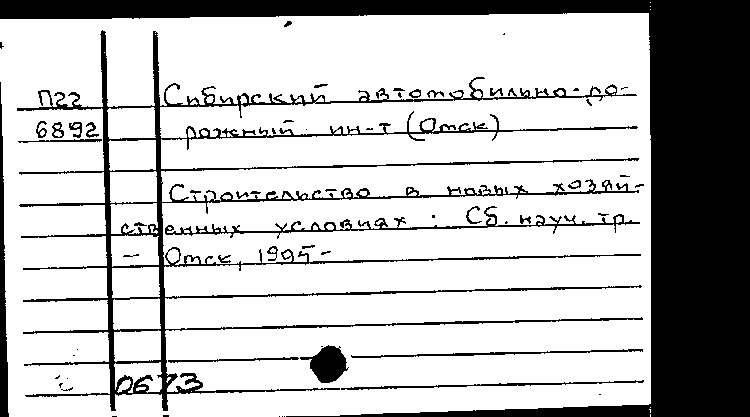 П22 Сибирский автомобильно-до-
6892 рожный ин-т (Омск)
Строительство в новых хозяй-
ственных условиях : Сб. науч. тр.
- Омск, 1995-
0673